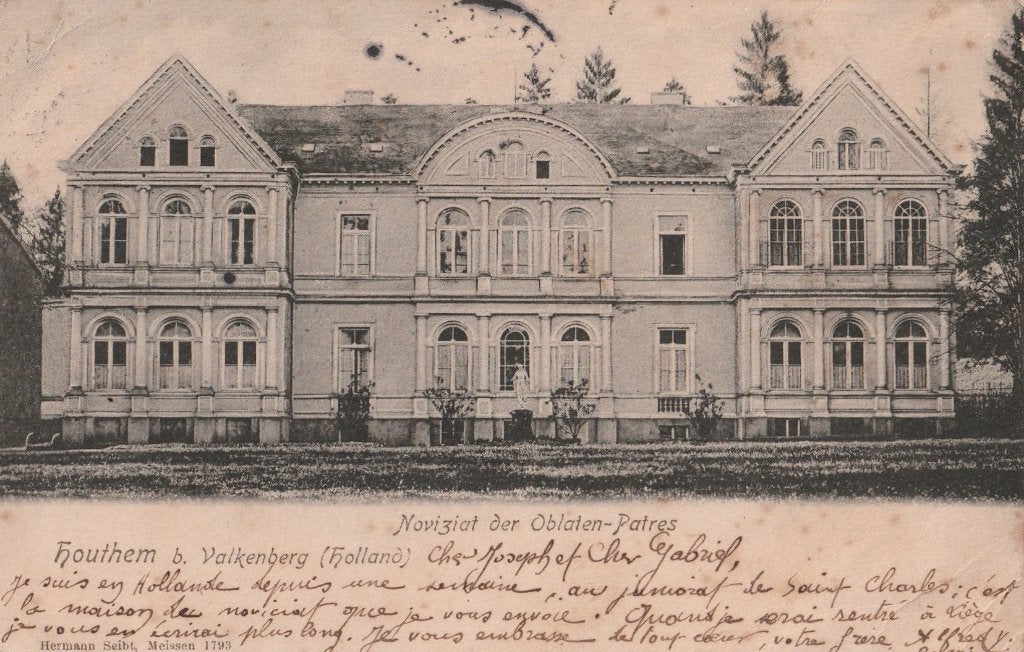 Noviziat der Oblaten-Patres
Houthem b. Valkenberg (Holland) Cher Joseph et Cher Gabriel,
Je suis en Hollande depuis une semaine, au juniorat de Saint Charles; c'est
la maison de noviciat que je vous envoie. Quand je serai rentré à Liège
je vous en écrirai plus long. Je vous embrasse de tout cœur, votre frère, Alfred
Hermann Seibt, Meissen 1793